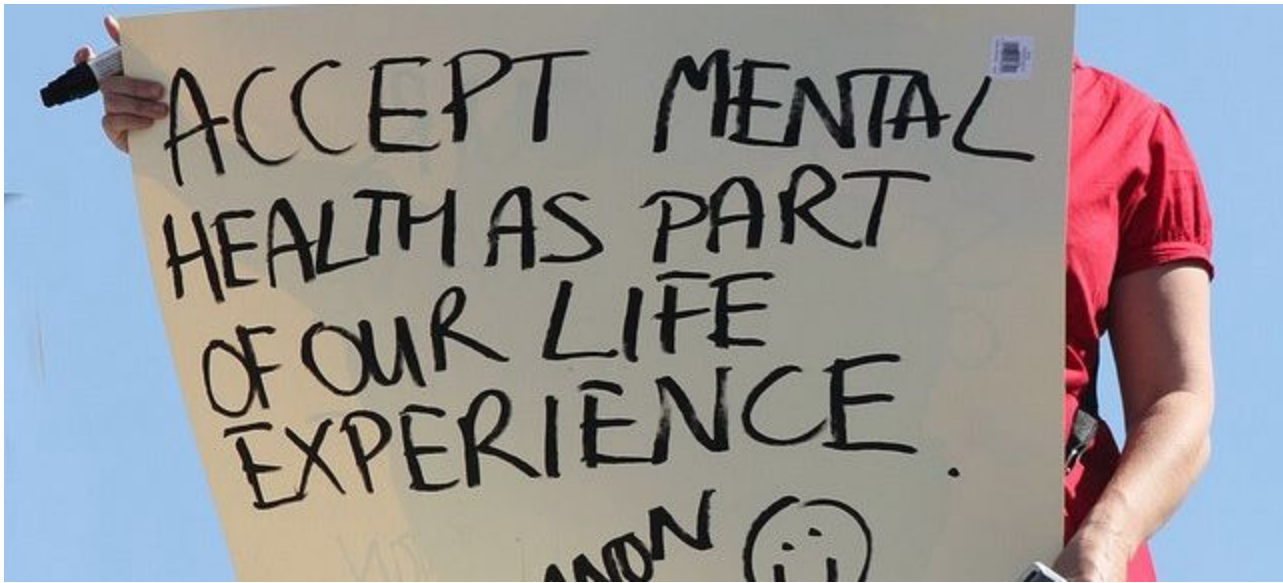 ACCEPT MENTAL
HEALTH AS PART
OF OUR LIFE
EXPERIENCE.
ANON